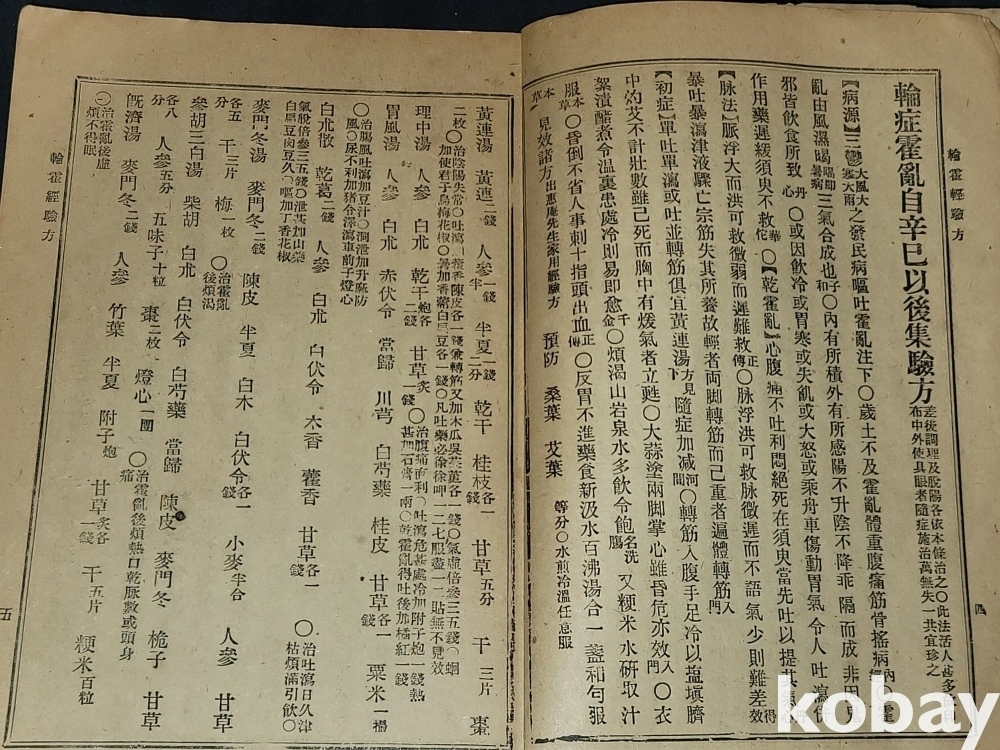 輪霍經驗方
輪症霍亂自辛巳以後集驗方 差後調理及脫陽各依本條治之〇此法活人甚多 布中外使具眼者隨症施治萬無失一共宜珍之
【病源】三鬱 大風大寒大雨 之發民病嘔吐霍亂注下〇歲土不及霍亂體重腹痛筋骨搖病 內 〇霍
亂由風濕暍 暍卽暑病 三氣合成也 子和 〇內有所積外有所感陽不升陰不降乖隔而成非因鬼
邪皆飮食所致 丹心 〇或因飮冷或胃寒或失飢或大怒或乘舟車傷動胃氣令人吐瀉
作用藥遲緩須臾不救 華佗 〇【乾霍亂】心腹痛不吐利悶絶死在須臾當先吐以提其氣
【脈法】脈浮大而洪可救微弱而遲難救 正傳 〇脈浮洪可救脉微遲而不語氣少則難差 得效
暴吐暴瀉津液驟亡宗筋失其所養故輕者兩脚轉筋而已重者遍體轉筋 入門
【初症】單吐單瀉或吐並轉筋俱宜黃連湯 方見下 隨症加減 河間 〇轉筋入腹手足冷以塩塡臍
中灼艾不計壯數雖已死而胸中有煖氣者立甦〇大蒜塗兩脚掌心雖昏危亦效 入門 〇衣
絮漬醋煮令溫裹患處冷則易卽愈 千金 〇煩渴山岩泉水多飮令飽名洗膓 又粳米水硏取汁
服 本草 〇昏倒不省人事刺十指頭出血 正傳 〇反胃不進藥食新汲水百沸湯合一盞和勻服
本草 見效諸方 出惠庵先生家用經驗方 預防 桑葉 艾葉 等分〇水煎冷溫任意服
四
黃連湯 黃連二錢 人參一錢半 半夏一錢二分 乾干 桂枝各一錢 甘草五分 干三片 棗
二枚〇治陰陽失常〇吐瀉 藿香陳皮各一錢〇兼轉筋又加木瓜吳茱萸各一錢〇氣虛倍參三五錢〇蛔 加使君子烏梅花椒〇暑加香薷白扁豆各一錢〇凡吐藥必徐徐呷一二七服盡一二貼無不見效
理中湯 人參 白朮 乾干炮各二錢 甘草炙一錢 〇治腹痛而利〇吐瀉危甚處冷加附子炮一錢熱甚加石膏一兩〇乾霍亂得吐後加橘紅一錢
胃風湯 人參 白朮 赤伏令 當歸 川芎 白芍藥 桂皮 甘草各一錢 粟米一撮
〇治腸風吐瀉加豆汁〇洞泄加升麻防風〇尿不利加猪令澤瀉車前子燈心
白朮散 乾葛二錢 人參 白朮 白伏令 木香 藿香 甘草各一錢 〇治吐瀉日久津枯煩滿引飮〇
氣脫倍參三五錢〇泄甚加山藥白扁豆肉豆久〇嘔加丁香花椒
麥門冬湯 麥門冬二錢 陳皮 半夏 白木 白伏令各一錢 小麥半合 人參 甘草
各五分 干三片 梅一枚 〇治霍亂後煩渴
參胡三白湯 柴胡 白朮 白伏令 白芍藥 當歸 陳皮 麥門冬 梔子 甘草
各八分 人參五分 五味子十粒 棗二枚 燈心一團 〇治霍亂後煩熱口乾脈數或頭身痛
旣濟湯 麥門冬二錢 人參 竹葉 半夏 附子炮 甘草炙各一錢 干五片 粳米百粒
〇治霍亂後虛煩不得眠
輪霍經驗方
五
kobay